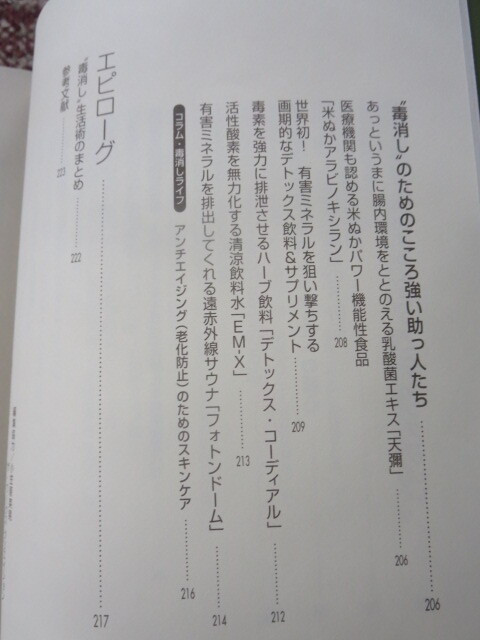 "毒消し"のためのこころ強い助っ人たち 206
あっというまに腸内環境をととのえる乳酸菌エキス「天彌」 206
医療機関も認める米ぬかパワー機能性食品
「米ぬかアラビノキシラン」 208
世界初！ 有害ミネラルを狙い撃ちする
画期的なデトックス飲料&サプリメント 209
毒素を強力に排泄させるハーブ飲料「デトックス・コーディアル」 212
活性酸素を無力化する清涼飲料水「EM-X」 213
有害ミネラルを排出してくれる遠赤外線サウナ「フォトンドーム」 214
コラム・毒消しライフ アンチエイジング(老化防止)のためのスキンケア 216
エピローグ 217
"毒消し"生活術のまとめ 222
参考文献 223